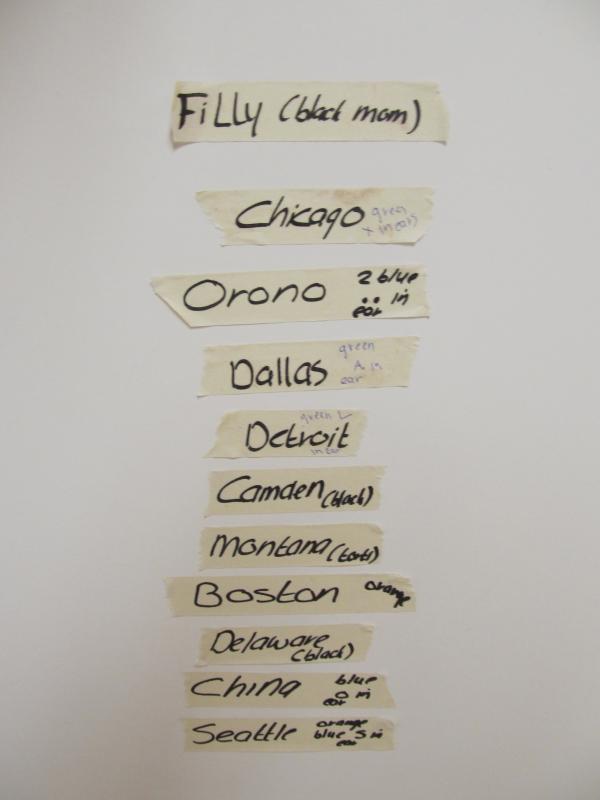 FiLLy (black mom)
Chicago green
x in ears
Orono 2 blue
.. in
ear
Dallas green
A in
ear
Detroit green L
in ear
Camden (black)
Montana (torti)
Boston orange
Delaware
(black)
China blue
o in
ear
Seattle orange
blue S in
ear